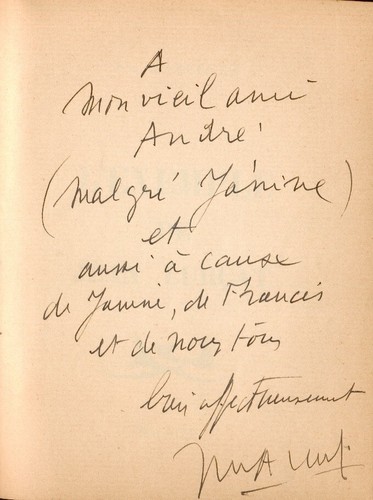 A
mon vieil ami
André
(malgré Janine)
et
aussi à cause
de Janine, de Francis
et de nous tous
bien affectueusement